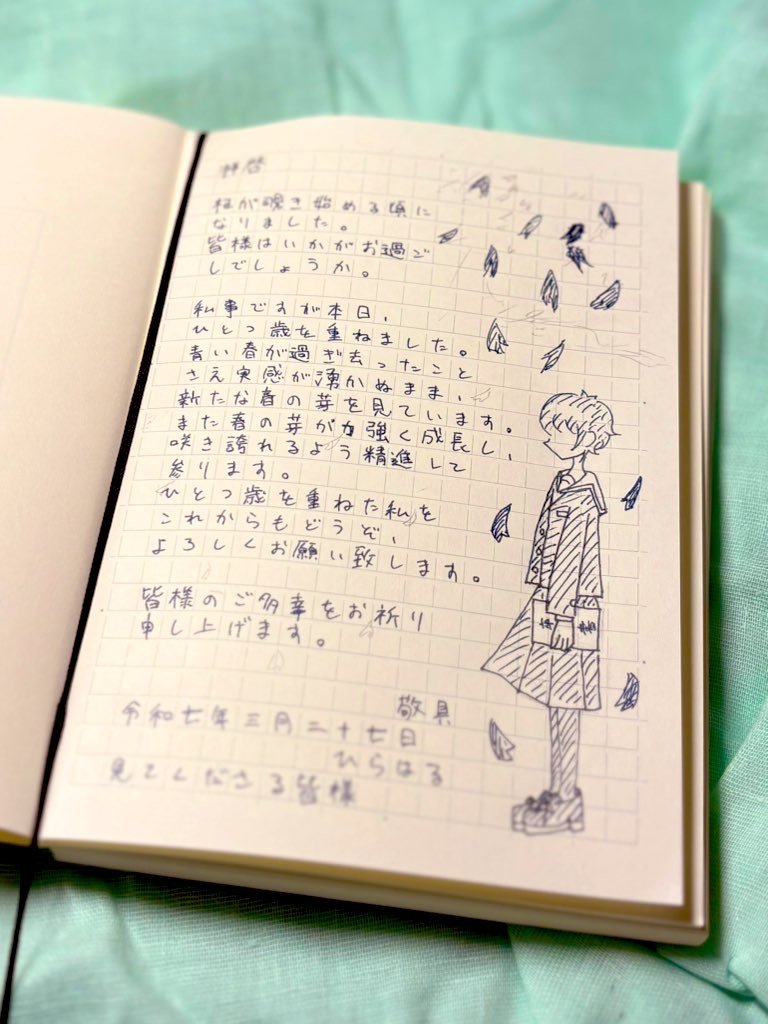 拝啓
桜が き始める頃に
なりました。
皆様はいかがお過ご
しでしょうか。
私事ですが本日、
ひとつ歳を重ねました。
青い春が過ぎ去ったこと
さえ実感が湧かぬまま、
新たな春の芽を見ています。
また春の芽が力強く成長し、
咲き誇れるよう精進して
参ります。
ひとつ歳を重ねた私を
これからもどうぞ、
よろしくお願い致します。
皆様のご多幸をお祈り
申し上げます。
敬具
令和七年三月二十七日
ひらはる
見てくださる皆様